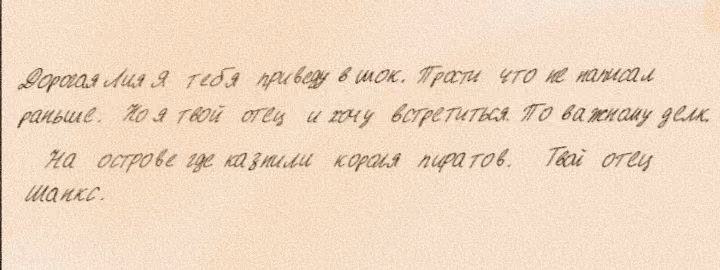 Дорогая Лия Я тебя приведу в шок. Прости что не написал
раньше. Но я твой отец и хочу встретиться. По важному делк.
На острове где казнили короля пиратов. Твой отец
Шанкс.